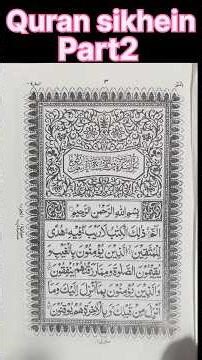 Quran sikhein
Part2
بِسْمِ اللّٰهِ الرَّحْمٰنِ الرَّحِیْمِ
الٓمّٓ ذٰلِكَ الْكِتٰبُ لَا رَیْبَ فِیْهِ هُدًی
لِّلْمُتَّقِیْنَ الَّذِیْنَ یُؤْمِنُوْنَ بِالْغَیْبِ وَ
یُقِیْمُوْنَ الصَّلٰوةَ وَمِمَّا رَزَقْنٰهُمْ یُنْفِقُوْنَ
وَالَّذِیْنَ یُؤْمِنُوْنَ بِمَاۤ اُنْزِلَ اِلَیْكَ وَمَاۤ
اُنْزِلَ مِنْ قَبْلِكَ وَبِالْاٰخِرَةِ هُمْ یُوْقِنُوْنَ